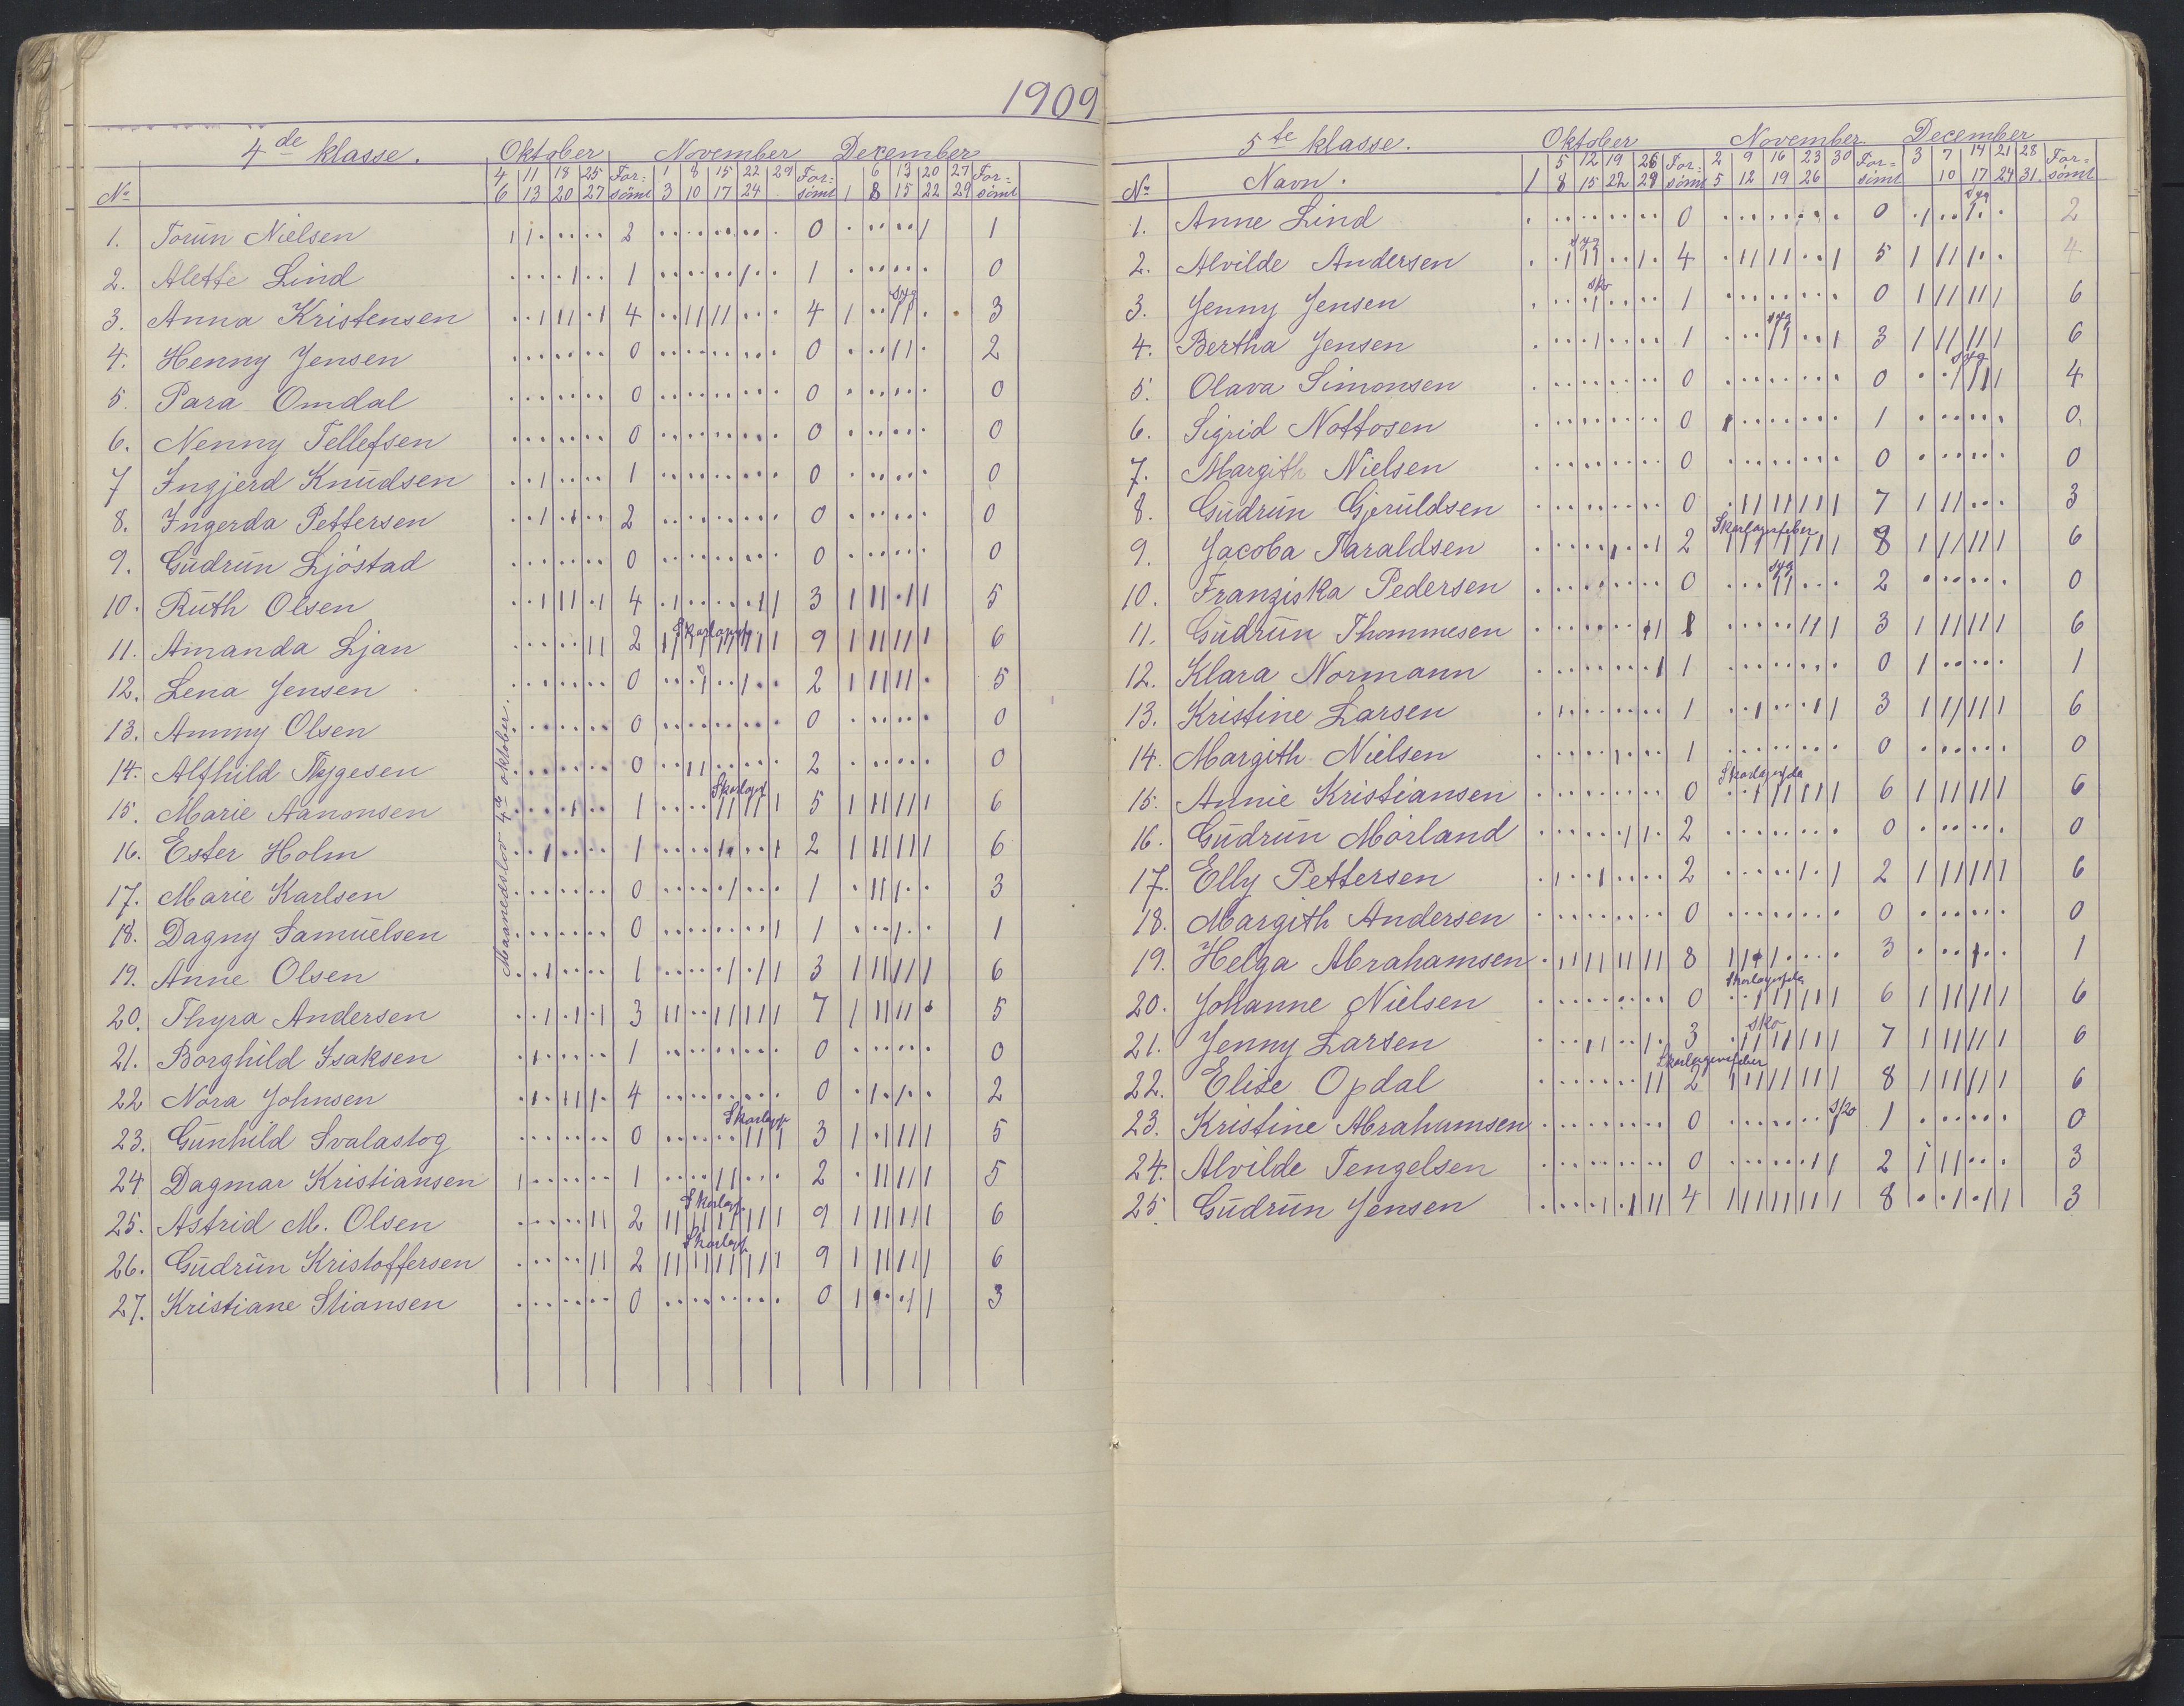 1909
4de klasse. Oktober November December
4 11 18 25 For- 1 8 15 22 29 For- 6 13 20 27 For-
No 6 13 20 27 sömt 3 10 17 24 sömt 1 8 15 22 29 sömt
1. Torün Nielsen 2 0 1
2. Alette Lind 1 1 0
syg
3. Anna Kristensen 4 4 3
4. Henny Jensen 0 0 2
5. Para Omdal 0 0 0
6. Nenny Tellefsen 0 0 0
7 Ingjerd Knüdsen 1 0 0
8. Ingerda Pettersen 2 0 0
9. Güdrün Ljöstad 0 0 0
10. Rüth Olsen 4 3 5
11. Amanda Ljan 2 9 6
12. Lena Jensen 0 2 5
13. Annny Olsen 0 0 0
14. Alfhild Thygesen 0 2 0
15. Marie Aanonsen 1 5 6
16. Ester Holm 1 2 6
17. Marie Karlsen 0 1 3
18. Dagny Samüelsen 0 1 1
19. Anne Olsen 1 3 6
20. Thyra Andersen 3 7 5
21. Borghild Isaksen 1 0 0
22 Nora Johnsen 4 0 2
23. Günhild Svalastog 0 3 5
24 Dagmar Kristiansen 1 2 5
25. Astrid M. Olsen 2 9 6
26. Güdrün Kristoffersen 2 9 6
27. Kristiane Stiansen 0 0 3
Maanedslov 4de oktober.
5te klasse. Oktober November December
5 12 19 26 For- 2 9 16 23 30 For- 3 7 14 21 28 For-
No Navn. 1 8 15 22 29 sömt 5 12 19 26 sömt 10 17 24 31. sömt
syg
1. Anne Lind 0 0 2
syg
2. Alvilde Andersen 4 5 4
sko
3. Jenny Jensen 1 0 6
syg
4. Bertha Jensen 1 3 6
syg
5. Olava Simonsen 0 0 4
6. Sigrid Nottosen 0 1 0
7. Margith Nielsen 0 0 0
8. Güdrün Gjerüldsen 0 7 3
Skarlagensfeber
9. Jacoba Taraldsen 2 8 6
syg
10. Franziska Pedersen 0 2 0
11. Güdrün Thommesen 3 6
12. Klara Normann 1 0 1
13. Kristine Larsen 1 3 6
14. Margith Nielsen 1 0 0
15. Annie Kristiansen 0 6 6
16. Güdrün Mörland 2 0 0
17. Elly Pettersen 2 2 6
18. Margith Andersen 0 0 0
19. Helga Abrahamsen 8 3 1
20. Johanne Nielsen 0 6 6
sko
21. Jenny Larsen 3 7 6
Skarlagensfeber
22. Elise Opdal 2 8 6
sko
23. Kristine Abrahamsen 0 1 0
24. Alvilde Tengelsen 0 2 3
25. Güdrün Jensen 4 8 3